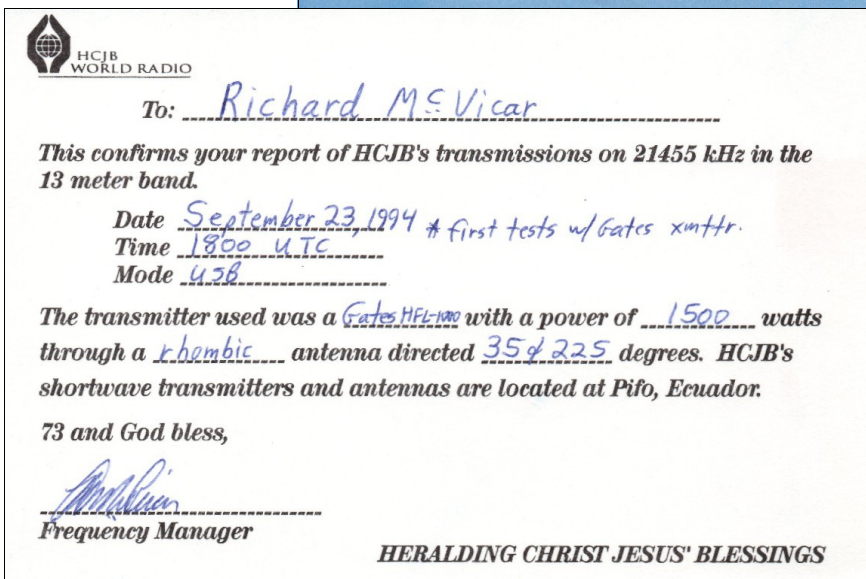 HCJB
WORLD RADIO
To: Richard McVicar
This confirms your report of HCJB's transmissions on 21455 kHz in the
13 meter band.
Date September 23, 1994 * first tests w/ Gates xmttr.
Time 1800 UTC
Mode USB
The transmitter used was a Gates HFL-1000 with a power of 1500 watts
through a rhombic antenna directed 35 & 225 degrees. HCJB's
shortwave transmitters and antennas are located at Pifo, Ecuador.
73 and God bless,
Frequency Manager
HERALDING CHRIST JESUS' BLESSINGS